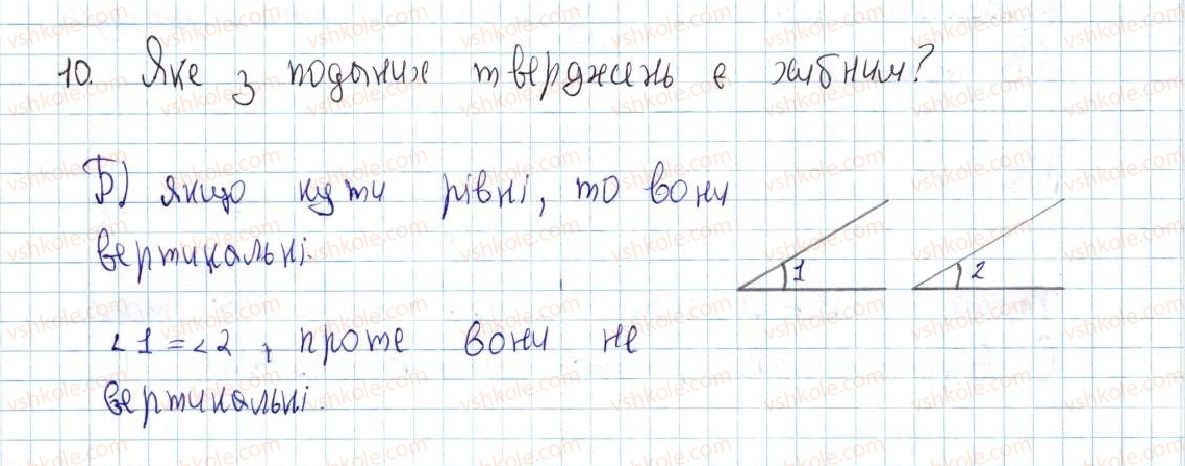 10. Яке з поданих тверджень є хибним?
Б) якщо кути рівні, то вони
вертикальні.
1 2
∠1 = ∠2, проте вони не
вертикальні.